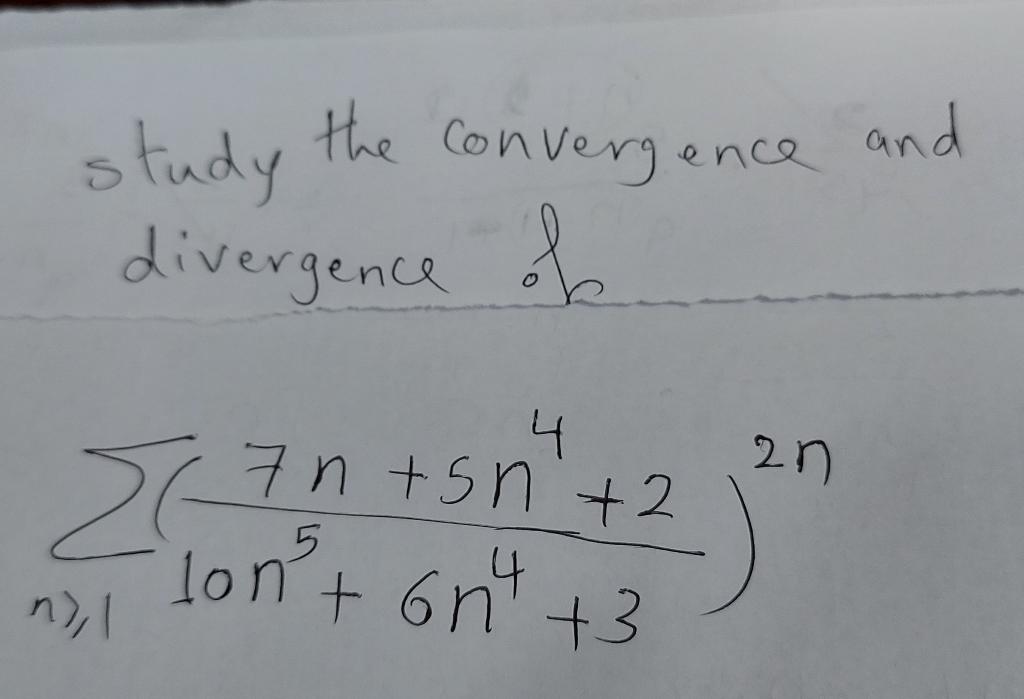 study the convergence and
divergence of
∑ ( (7n + 5n⁴ + 2) / (10n⁵ + 6n⁴ + 3) )²ⁿ
n≥1